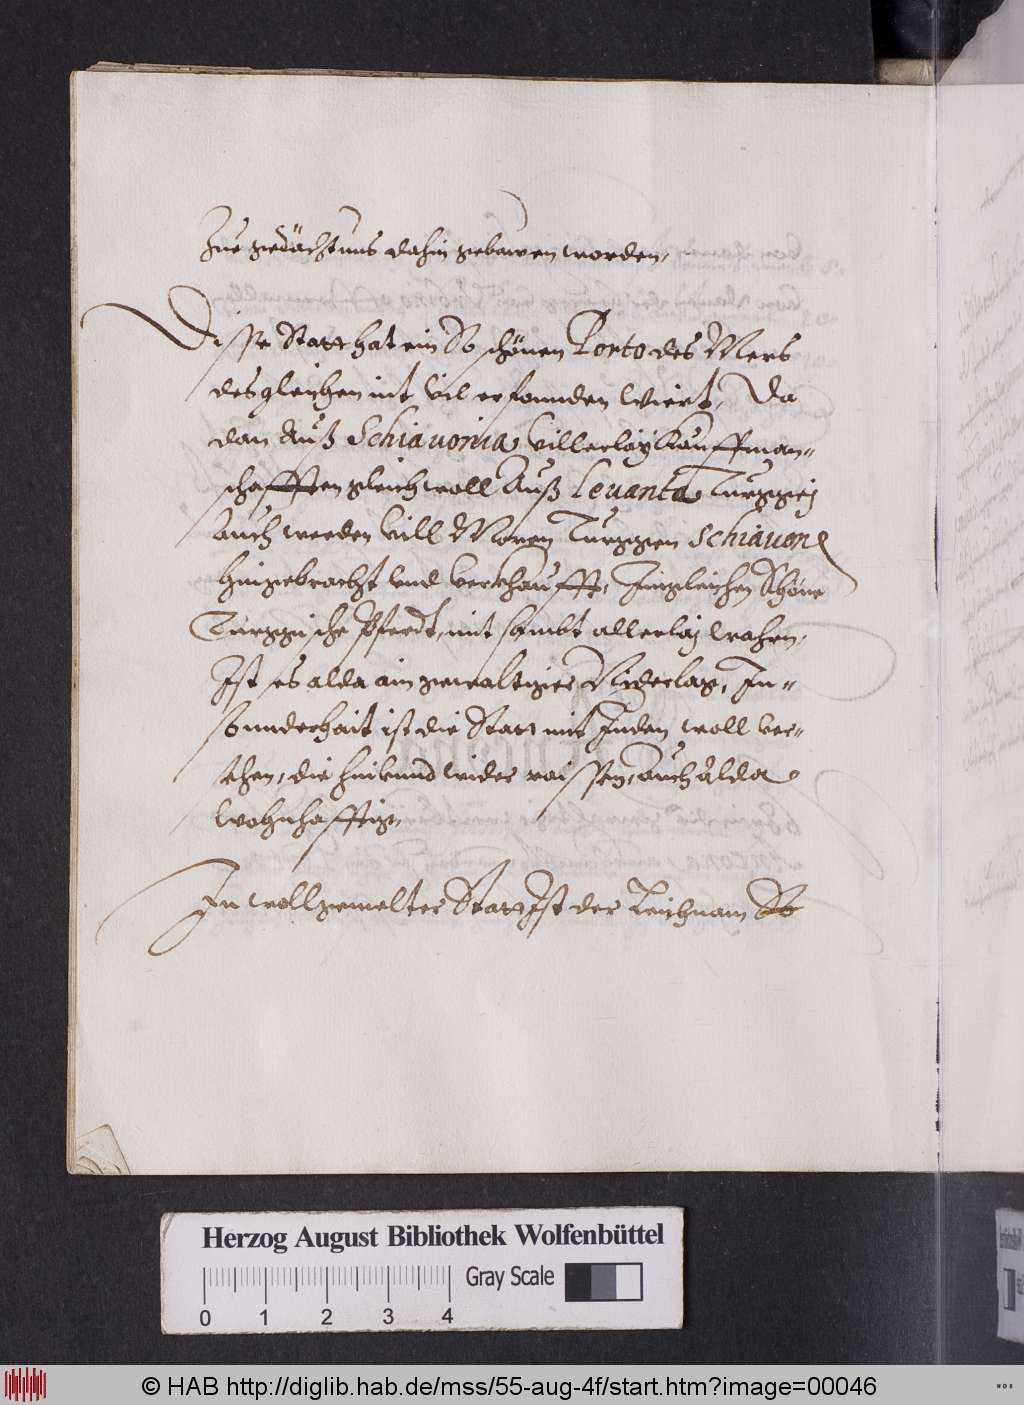 Zue gedächtnus dahin gebawen worden,
Disse Statt hat ein So schönen Porto des Mers
desgleichen nit vil erfonnden wiert, Da
dan Auß Schiauonia villerlaÿ Kauffman-
schafften gleich woll Auß Leuanta Turggej
auch werden vill Moren Turggen Schiauon
hingebracht vnd verkhaufft, Jnngleichen Schöne
Turggische Pferdt, mit sambt allerlaj wahrn,
Jst es alda ain gewaltiger Niderlag, Jn-
sonnderhait ist die Statt mit Juden woll ver-
sehen, die hin vnnd wider raissen, auch alda
wohnhafftig,
Jn wollgemelter Statt Jst der Leichnam So
Herzog August Bibliothek Wolfenbüttel
Gray Scale
0 1 2 3 4
© HAB http://diglib.hab.de/mss/55-aug-4f/start.htm?image=00046